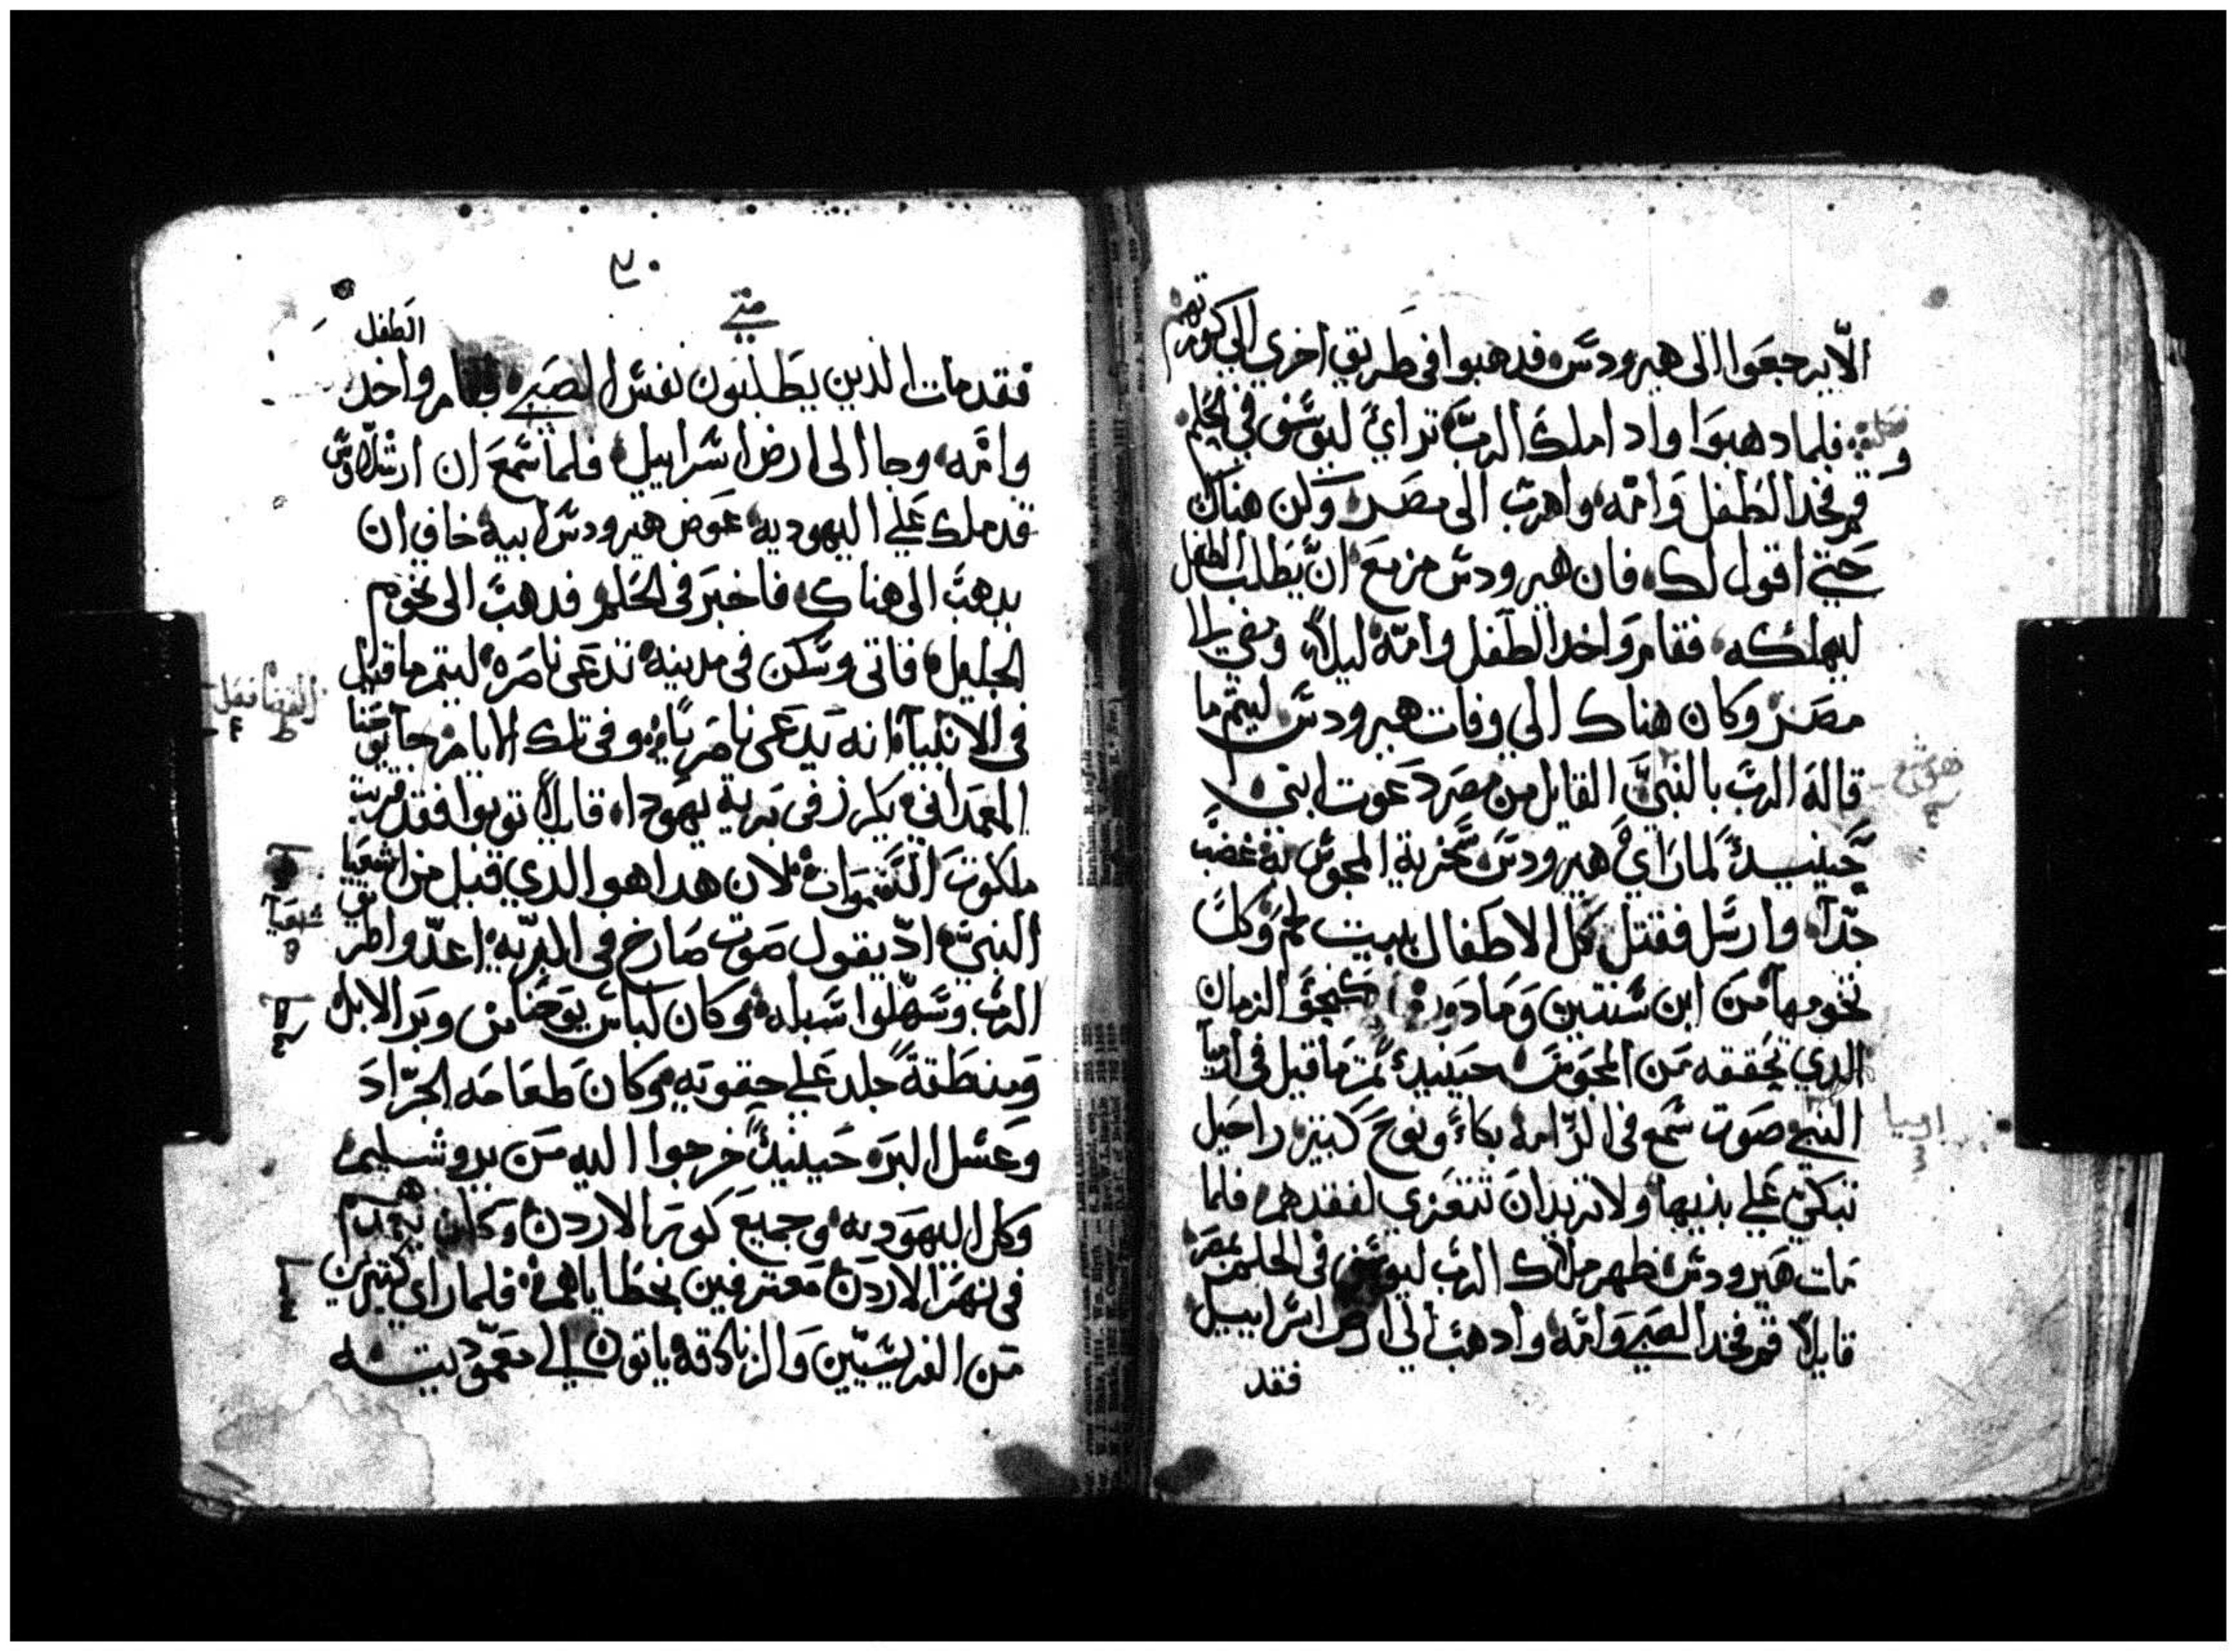 الّا يرجعوا الى هيرودس فدهبوا فى طريق اخري الي كورتهم
فلما دهبوا واد املاك الرب تراي ليوسف في الحلم
قم فخد الطفل وامه واهرب الى مصر وكن هناك
حتي اقول لك فان هيرودس مزمع ان يطلب الطفل
ليهلكه فقام واخد الطفل وامه ليلاً ومضي الى
مصر وكان هناك الي وفات هيرودس ليتم ما
قاله الرب بالنبي القايل من مصر دعوت ابني
حينيدٍ لما راي هيرودس سخرية المجوس به غضب
جدآ وارسل فقتل كل الاطفال ببيت لحم وكل
تخومها من ابن سنتين وما دون كنحو الزمان
الدي تحققه من المجوس حينيدٍ تم ما قيل فى ارميا
النبي صوت سمع فى الرامه بكاءً ونوح كتير راحيل
تبكي علي بنيها ولا تريد ان تتعزي لفقدهم فلما
مات هيرودس ظهر ملاك الرب ليوسف فى الحلم بمصر
قايلاً قم فخد الصبي وامه وادهب الي ارض اسراييل
فقد
هوشع
ارميا
٢٠
متي
الطفل
فقد مات الدين يطلبون نفس الصبي فقام واخد
وامه وجا الى ارض اسراييل فلما سمع ان ارشلاوس
قد ملك علي اليهوديه عوض هيرودس ابيه خاف ان
يدهب الى هناك فاخبر فى الحلم فدهب الى تخوم
الجليل فاتى وسكن فى مدينه تدعى ناصره ليتم ما قيل
فى الانبيآء انه يدعى ناصرياً وفى تلك الايام جآ يوحنا
المعمدانى يكرز فى برية يهودا قايلاً توبوا فقد قربت
ملكوت السموات لان هدا هو الدي قيل من اشعيا
النبي اد يقول صوت صارخ فى البريه اعدّوا طرق
الرب وسهّلوا سبله وكان لباس يوحنا من وبر الابل
ومنطقةً جلد علي حقويه وكان طعامه الجراد
وعسل البر حينيدٍ خرجوا اليه من يروشليم
وكل اليهوديه وجميع كورة الاردن وكان يعمدهم
في نهر الاردن معترفين بخطاياهم فلما راي كتيرين
من الفريسيّين والزنادقه ياتون الي معموديته
شعيآ